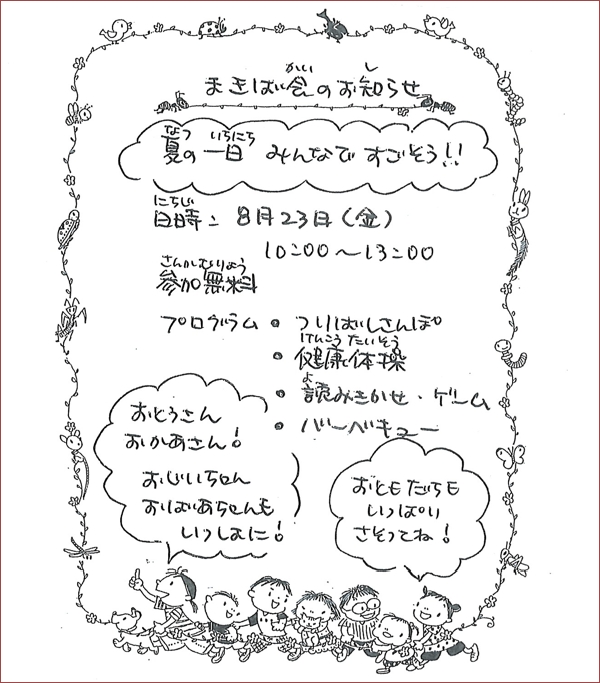 かい し
まきば会のお知らせ
なつ いちにち
夏の一日 みんなで すごそう!!
にちじ
日時: 8月23日(金)
10:00~13:00
さんかむりょう
参加無料
プログラム • つりばしさんぽ
けんこう たいそう
• 健康体操
よ
• 読みきかせ・ゲーム
• バーベキュー
おとうさん
おかあさん!
おじいちゃん
おばあちゃんも
いっしょに!
おともだちも
いっぱい
さそってね!